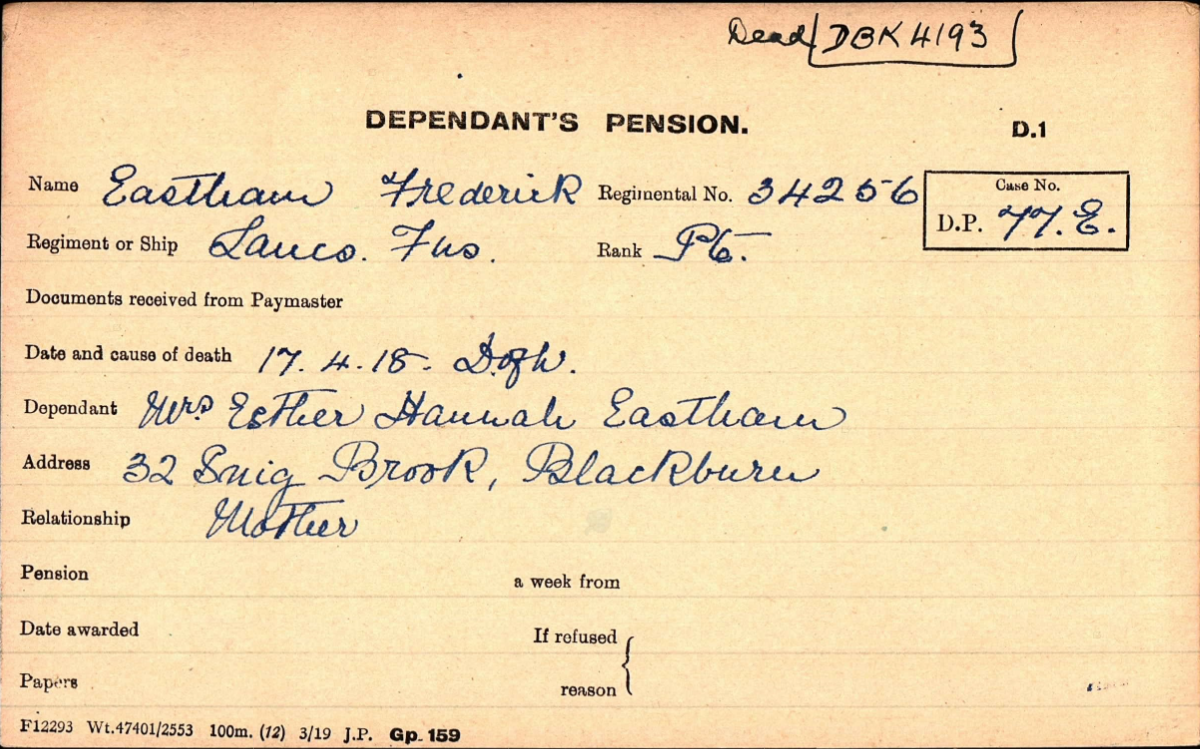 Dead / DBK 4193
DEPENDANT'S PENSION. D.1
Name Eastham Frederick Regimental No. 34256 Case No.
Regiment or Ship Lancs. Fus. Rank Pte. D.P. 77.E.
Documents received from Paymaster
Date and cause of death 17.4.18. D.ofW.
Dependant Mrs Esther Hannah Eastham
Address 32 Snig Brook, Blackburn
Relationship Mother
Pension a week from
Date awarded If refused
Papers reason
F12293 Wt.47401/2553 100m. (12) 3/19 J.P. Gp. 159